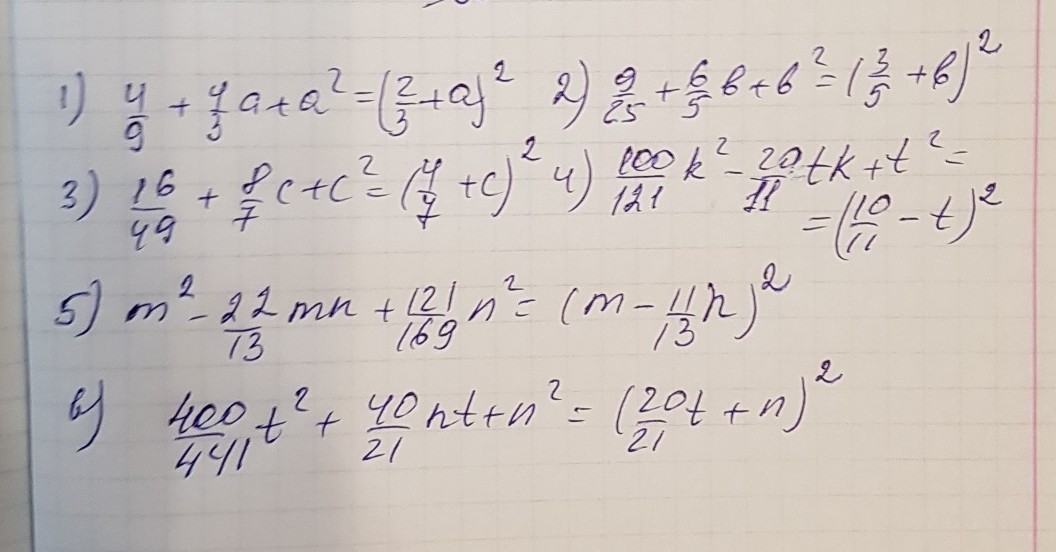 1) 4/9 + 4/3 a + a² = (2/3 + a)² 2) 9/25 + 6/5 в + в² = (3/5 + в)²
3) 16/49 + 8/7 c + c² = (4/7 + c)² 4) 100/121 k² - 20/11 tk + t² =
= (10/11 - t)²
5) m² - 22/13 mn + 121/169 n² = (m - 11/13 n)²
6) 400/441 t² + 40/21 nt + n² = (20/21 t + n)²